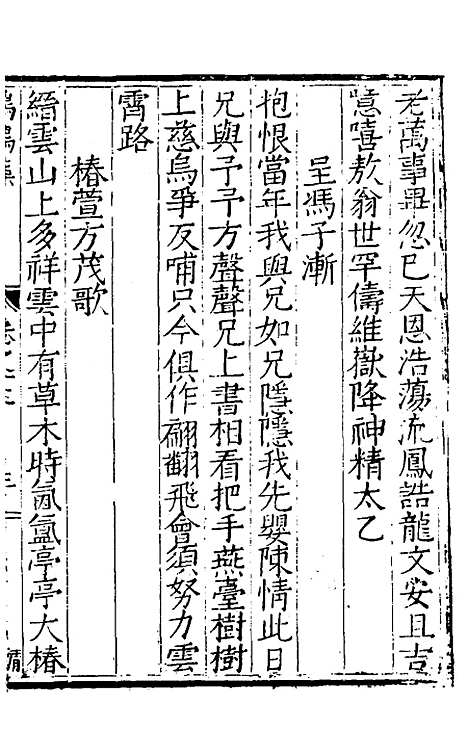 老萬事畢忽已天恩浩蕩流鳳誥龍文安且吉
噫嘻敖翁世罕儔維嶽降神精太乙
呈馮子漸
抱恨當年我與兄如兄隱隱我先嬰陳情此日
兄與予予方聲聲兄上書相看把手燕臺樹樹
上慈烏爭反哺只今俱作翩翻飛會須努力雲
霄路
椿萱方茂歌
縉雲山上多祥雲中有草木時氤氳亭亭大椿